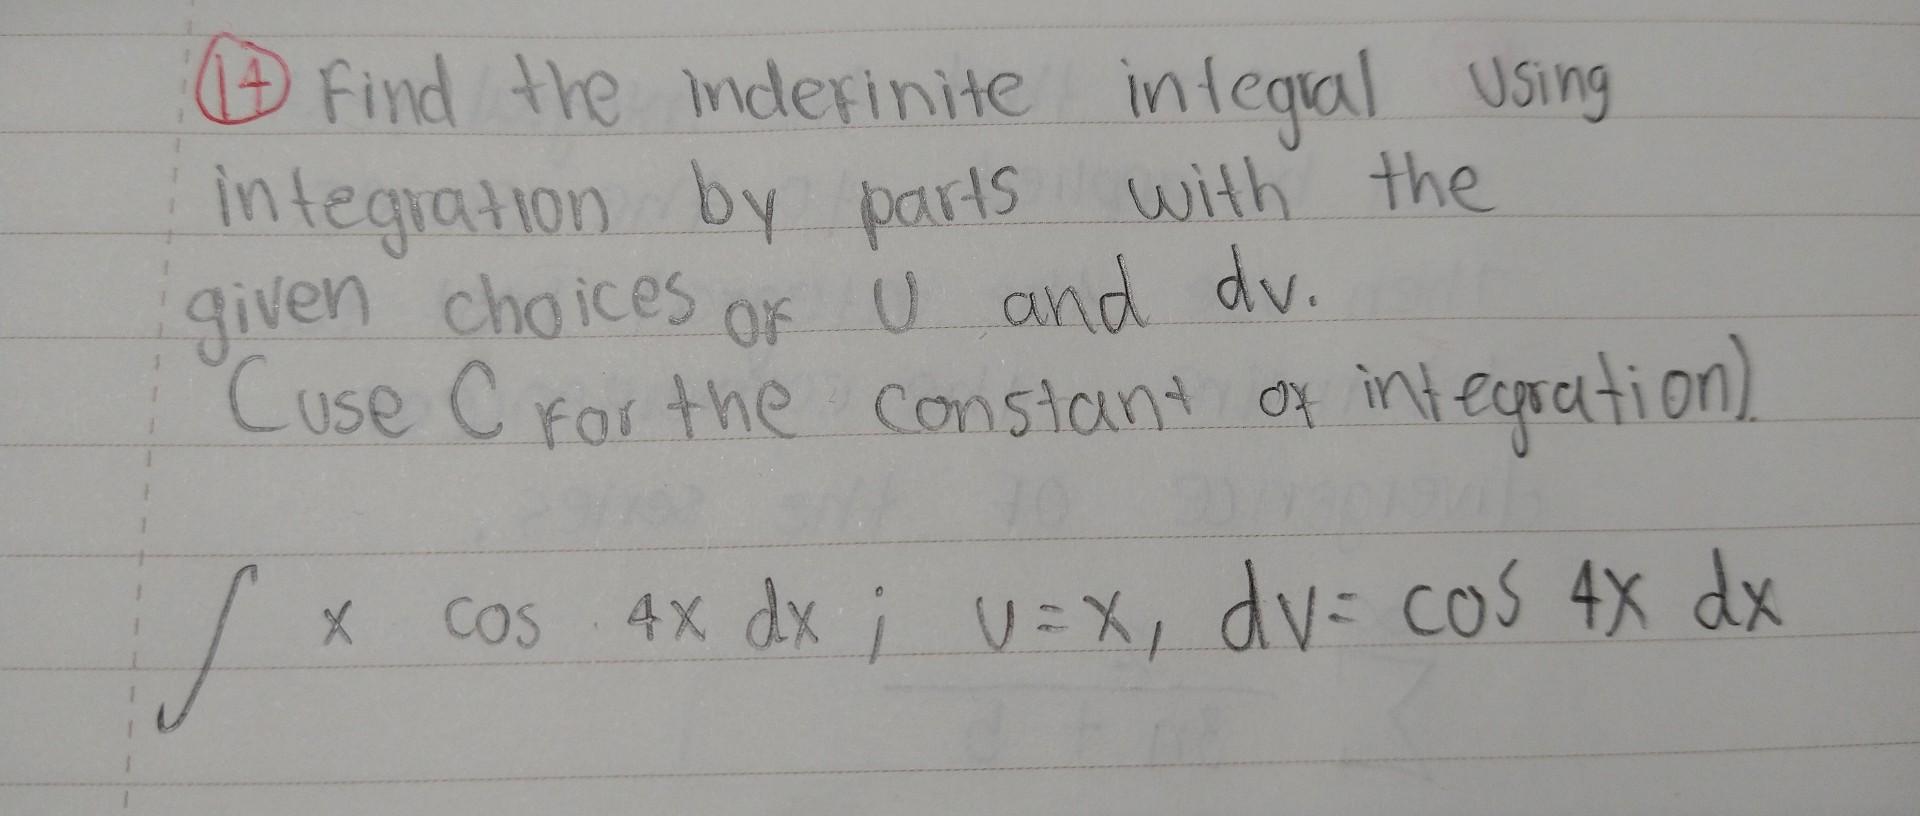 14 Find the indefinite integral using
integration by parts with the
given choices of U and dv.
(use C for the constant of integration).
∫ x cos 4x dx ; u=x, dv= cos 4x dx